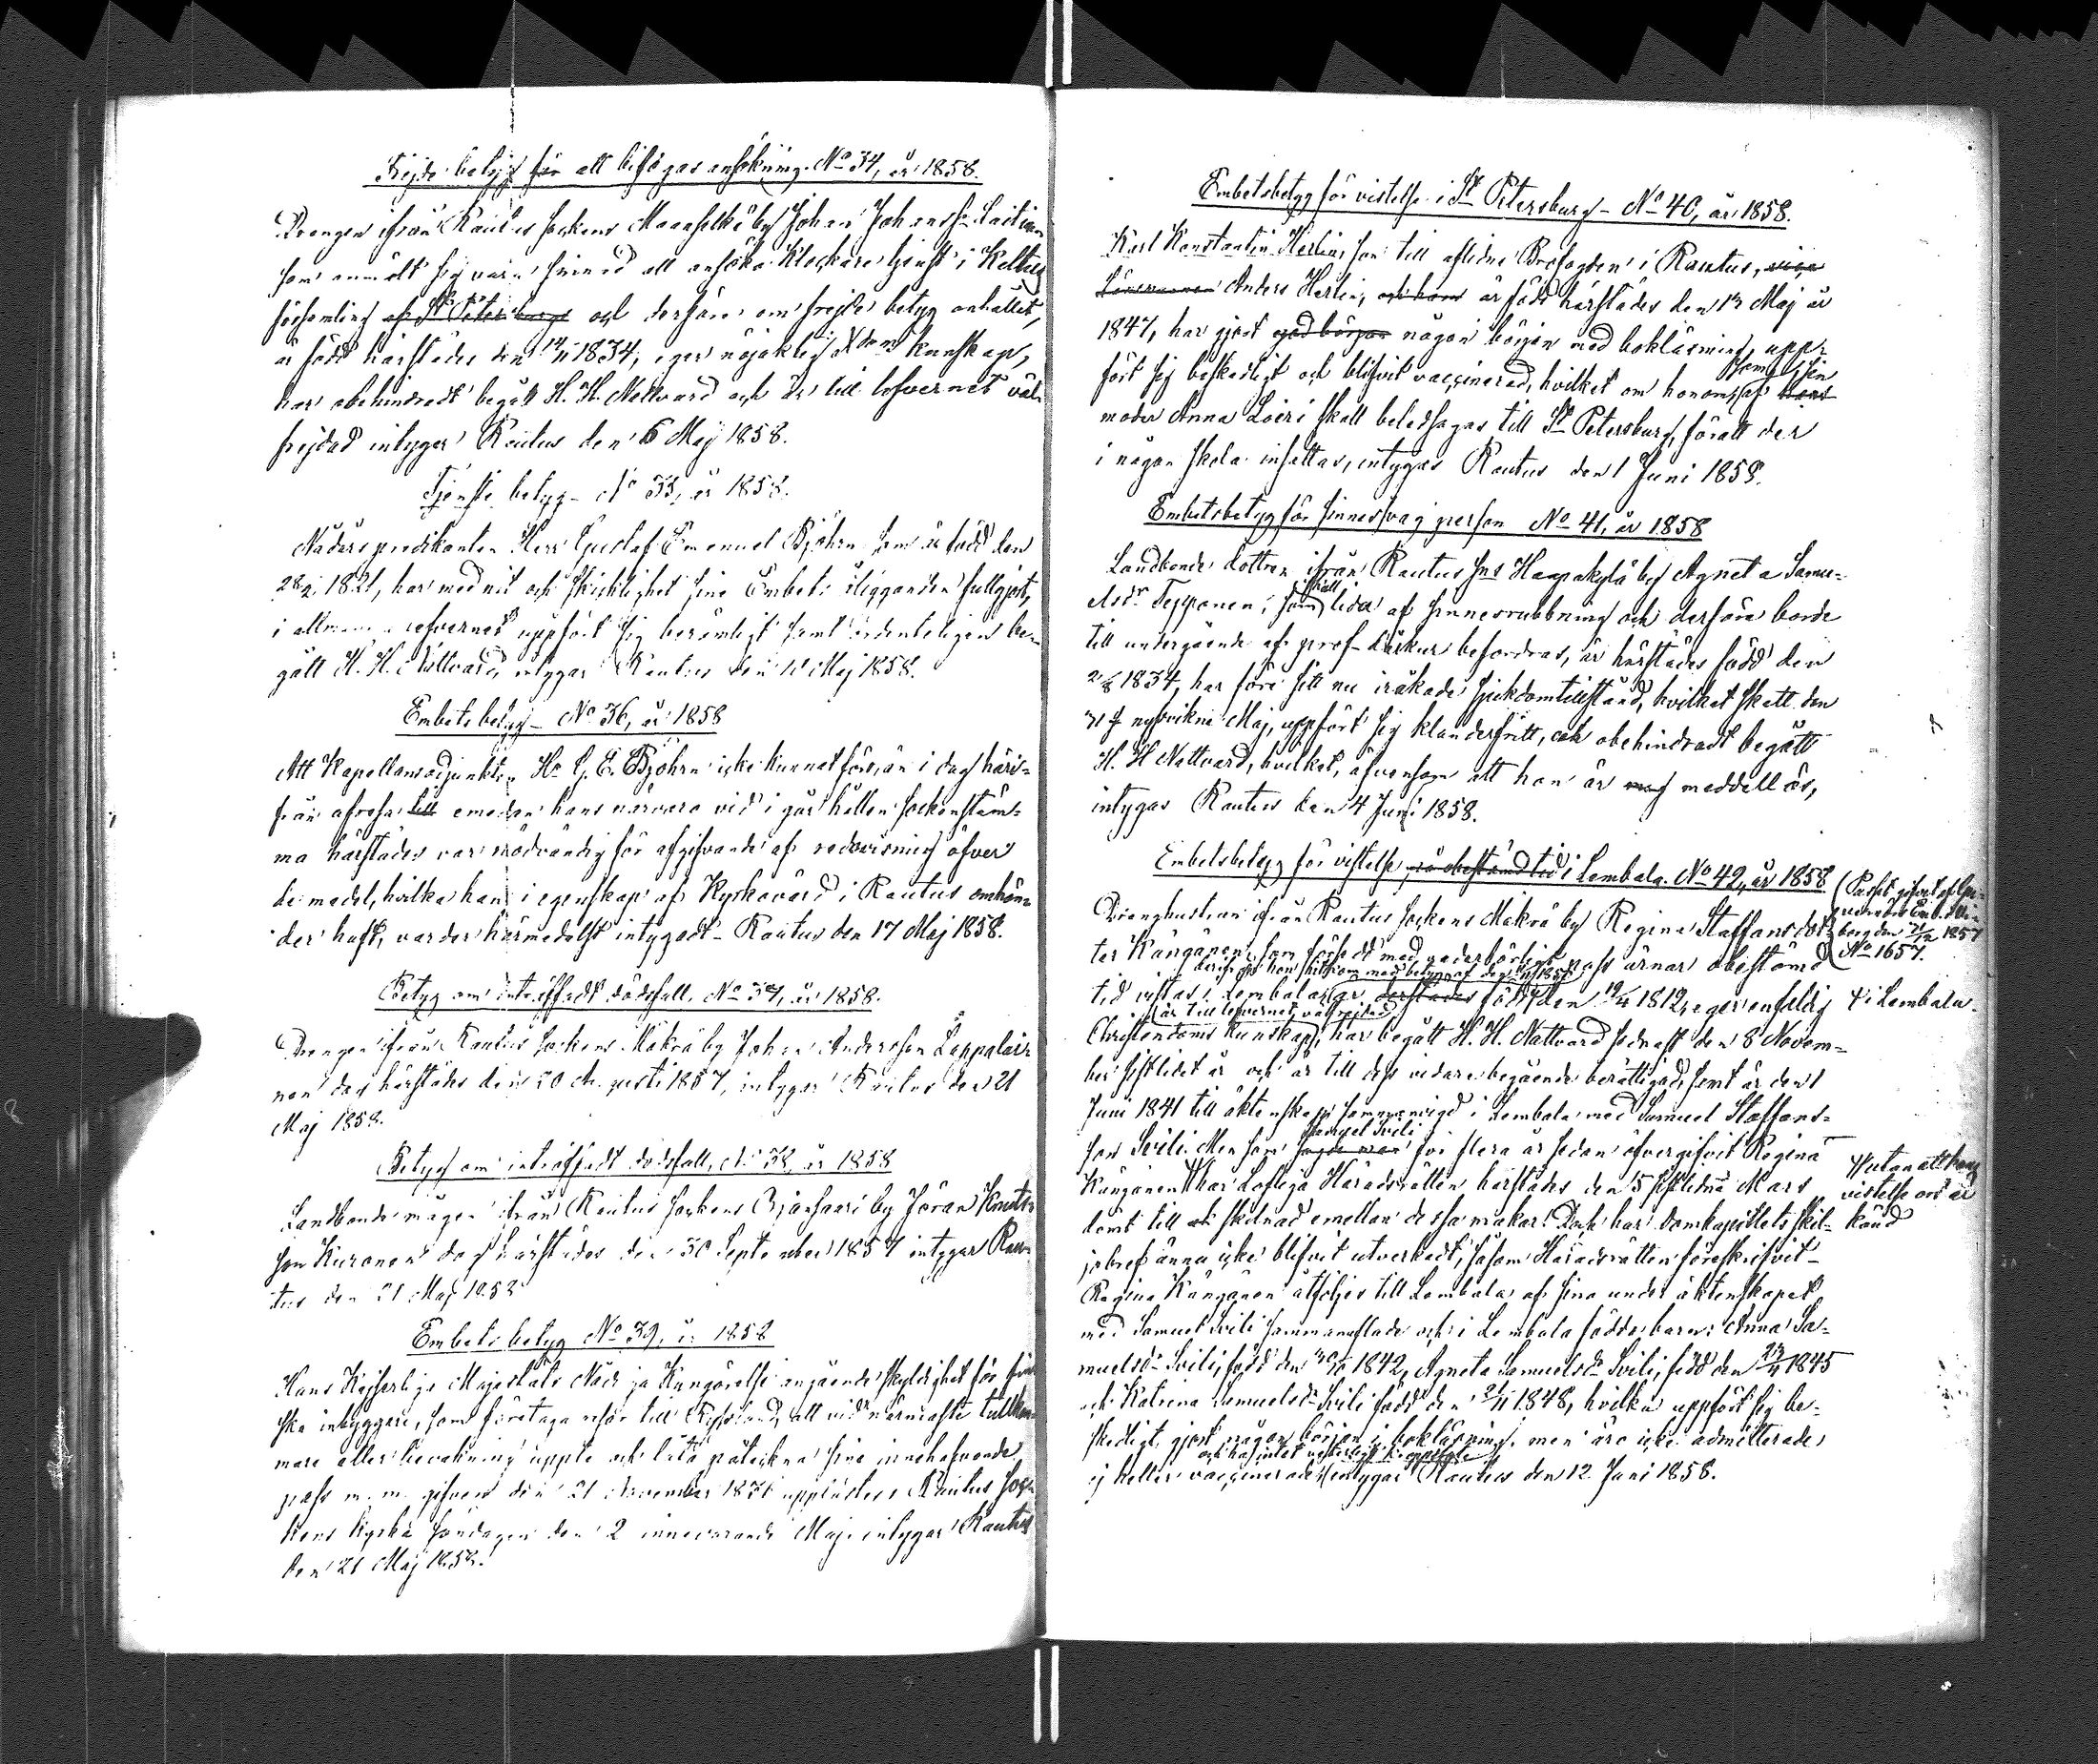 Frejde betyg för att bifogas ansökning. No 34, år 1858.
Drengen ifrån Rautus sockens Maanselkä by Johan Johanss. Laitinen
som anmält sig vara sinnad att ansöka Klockare tjenst i Keltus
församling af St Petersburgs och derföre om frejde betyg anhållit,
är född härstädes den 14/11 1834, eger nöjaktig Xdoms kunskap,
har obehindradt begått H. H. Nattvard och är till lefvernet väl
frejdad intygar Rautus den 6 Maj 1858.
Tjenste betyg No 35, år 1858.
Nådårspredikanten Herr Gustaf Emanuel Björhn som är född den
28/2 1821, har med nit och skicklighet sina Embets åligganden fullgjort,
i allmänna lefvernet uppfört sig berömligt samt ordenteligen be-
gått H. H. Nattvard, intygar Rautus den 10 Maj 1858.
Embets betyg No 36, år 1858
Att Kapellansadjunkten Hr G. E. Björhn icke kunnat förr, än i dag häri-
från afresa till emedan hans närvaro vid i går hållen sockenstäm-
ma härstädes var nödvändig för afgifvande af redovisning öfver
de medel, hvilka han i egenskap af Kyrkovärd i Rautus omhän-
der haft, varder härmedelst intygadt. Rautus den 17 Maj 1858.
Betyg om inträffadt dödsfall. No 37, år 1858.
Drengen ifrån Rautus sockens Mäkrä by Johan Andersson Lappalai-
nen dog härstädes den 20 Augusti 1857, intygar Rautus den 21
Maj 1858.
Betyg om inträffadt dödsfall, No 38, år 1858
Landbonde mågen ifrån Rautus sockens Orjansaari by Jöran Knuts-
son Kuronen dog härstädes den 30 September 1857 intygar Rau-
tus den 21 Maj 1858
Embets betyg No 39, år 1858
Hans Kejserliga Majestäts Nådiga Kungörelse angående skyldighet för fin-
ska inbyggare, som företaga resor till Ryssland, att vid närmaste tullkam-
mare eller bevakning uppte och låta påteckna sine innehafvande
pass m. m. gifven den 21 November 1831 upplästes i Rautus soc-
kens kyrka söndagen den 2 innevarande Maj. intygar Rautus
den 21 Maj 1858.
Embetsbetyg för vistelse i St Petersburg - No 40, år 1858.
Karl Konstantin Herlin, son till aflidne Profogden i Rautus,
Länsmannen Anders Herlin, och hans är född härstädes den 12 Maj år
1847, har gjort god början någon början med bokläsning, upp-
fört sig beskedligt och blifvit vaccinerad, hvilket om honom, som af sin hans
moder Anna Loiri skall beledsagas till St Petersburg, föratt der
i någon skola insättas, intygas Rautus den 1 Juni 1858.
Embetsbetyg för sinnessvag person No 41, år 1858
Landbonde dottren ifrån Rautus sns Haapakylä by Agneta Samu-
elsdr Tepponen, som skall lida af sinnesrubbning och derföre borde
till undergående af prof- kurkur befordras, är härstädes född den
2/8 1834, har före sitt nu iråkade sjukdomtillstånd, hvilket skett den
31 nyssvikne Maj, uppfört sig klanderfritt, och obehindradt begått
H. H Nattvard, hvilket, äfvensom att hon är meddellös,
intygas Rautus den 4 Juni 1858.
Embetsbetyg för vistelse på obestämd tid i Lembala. No 42, år 1858
(Passet gifvet af Gu-
vernören i Wi-
borg den 21/12 1857
No 1657.
Dränghustrun ifrån Rautus sockens Mäkrä by Regina Staffansdot-
ter Kängänen, som försedt med vederbörligt pass ärnar obestämd
tid vistas i Lembala, derifrån hon hitkom med betyg af den 1857 är derstädes född den 19/4 1812, eger enfaldig
+ i Lembala
är till lefvernet välfrejdad
Christendoms kunskap, har begått H. H. Nattvard sednast den 8 Novem-
ber sistlidet år och är till dess vidare begående berättigad, samt är den 1
Juni 1841 till äktenskap sammanvigd i Lembala med Samuel Staffans-
son Sivili. Men som Samuel Sivili sagde man för flera år sedan öfvergifvit Regina
Kängänen utan att hans
vistelse ort är
känd
har Loflige Häradsrätten härstädes den 5 sistledne Mars
dömt till skilnad emellan dessa makar. Dock har Domkapitlets skil-
jobref ännu icke blifvit utverkadt, såsom Häradsrätten föreskrifvit-
Regina Kängänen åtföljes till Lembala af sina under äktenskapet
med Samuel Sivili sammanaflade och i Lembala födde barn: Anna Sa-
muelsdr Sivili, född den 30/ 1842, Agneta Samuelsdr Sivili, född den 23/4 1845
och Katrina Samuelsdr Sivili född den 21/11 1848, hvilka uppfört sig be-
skedligt, gjort någon början i bokläsning, men äro icke admitterade,
ej heller vaccinerade, och haf intygar Rautus den 12 Juni 1858.